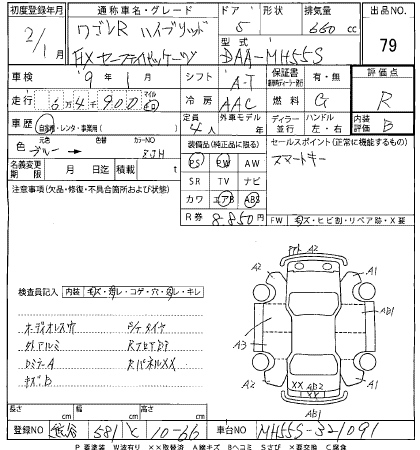 初度登録年月 通称車名・グレード ドア 形状 排気量 出品NO.
2/1 ワゴンR ハイブリッド 5 660 cc 79
HXセーフティパッケージ 型式 DAA-MH55S
車検 9年 1月 シフト AT 保証書 有・無 評価点
走行 64,900 マイル 冷房 AAC 燃料 G R
車歴 自家用・レンタ・事業用( ) 定員 4人 外車モデル年 ディーラー 並行 ハンドル 左・右 内装評価 B
色 元色 ブルー → カラーNO ZJH 装備品(純正品に限る) セールスポイント(正常に機能するもの)
名義変更期限 月 日迄 積載 t PS PW AW スマートキー
注意事項(欠品・修復・不具合箇所および状態) SR TV ナビ
カワ エアB ABS
R券 8,850 FW キズ・ヒビ割・リペア跡・X要
A2
A2 A1
検査員記入 内装 キズ・汚レ・コゲ・穴・ヌレ・キレ
オーディオレス
外アルミ
A3 AB1
A2 A1
キズB RパネルXX
XX AB2 XX
AB1
長さ cm 幅 cm 高さ cm
登録NO 熊谷 581 と 10-66 車台NO MH55S-321091
P 要塗装 W波有り ××取替済 A線キズ Bヘコミ Sサビ ×要交換 C腐食